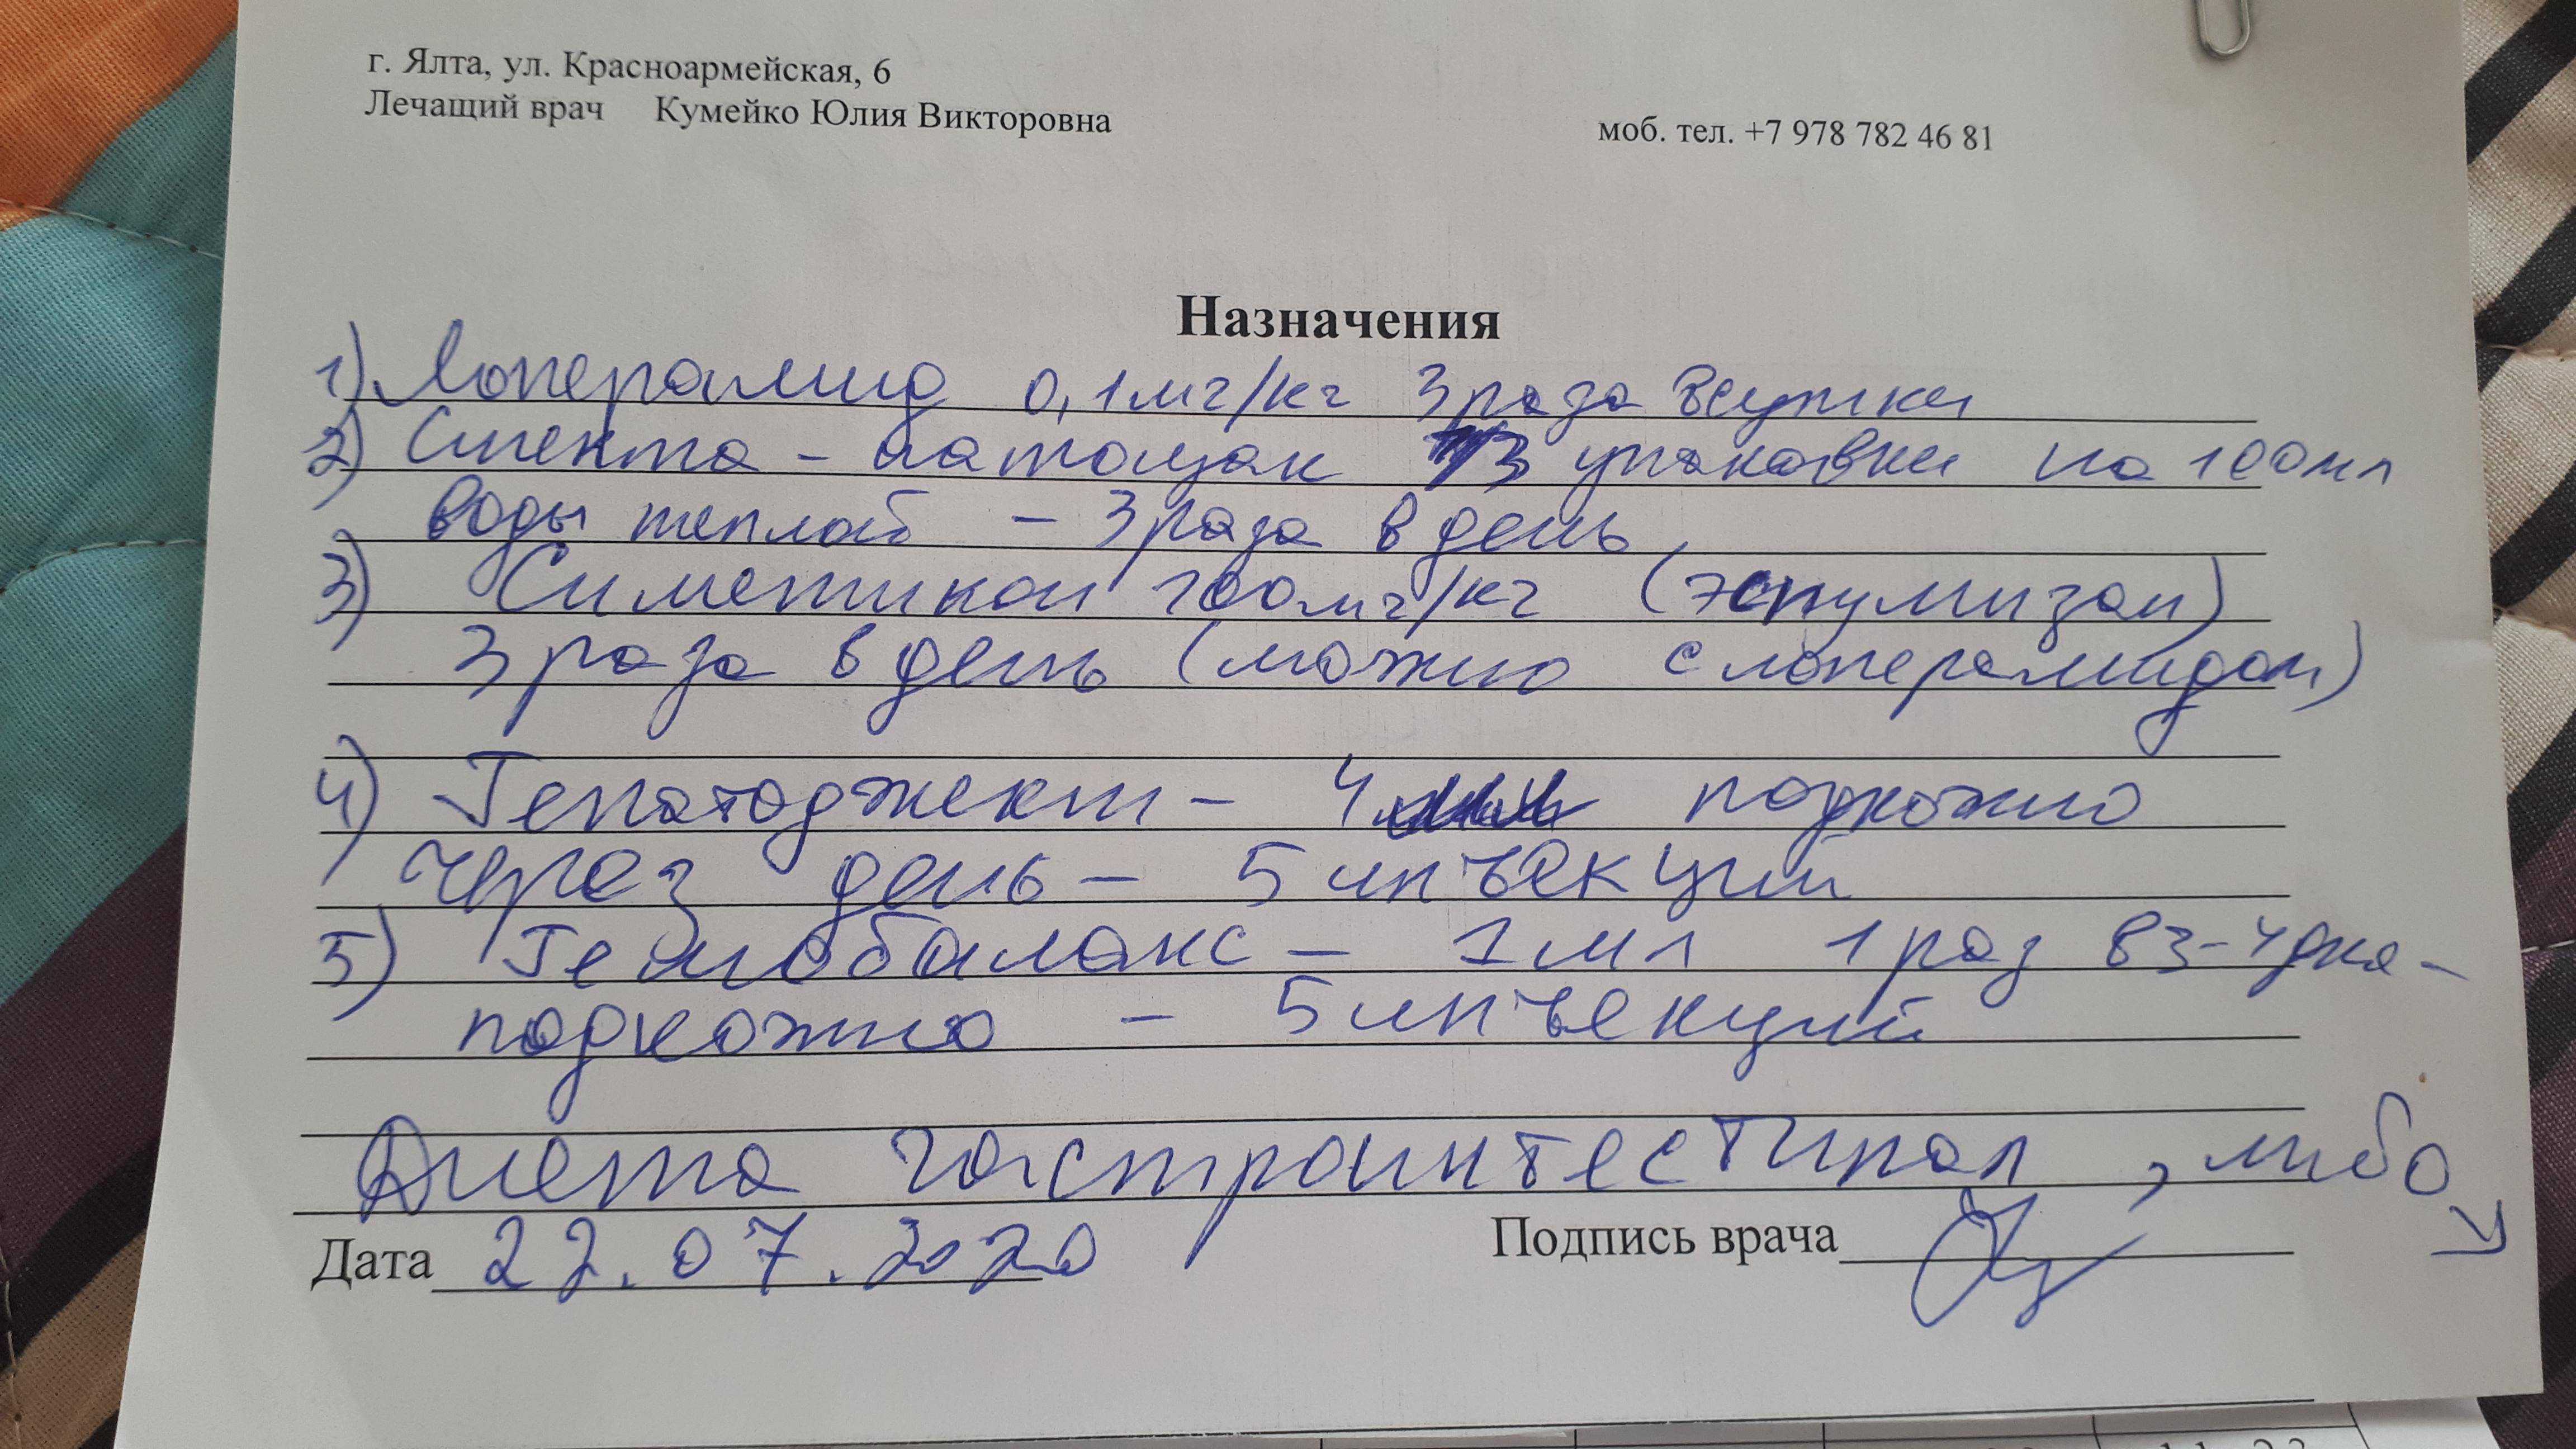 г. Ялта, ул. Красноармейская, 6
Лечащий врач Кумейко Юлия Викторовна
моб. тел. +7 978 782 46 81
Назначения
1) Лоперамид 0,1мг/кг 3 раза всутки
2) Смекта - натощак 1/3 упаковки на 100мл
воды теплой - 3 раза в день
3) Симетикон 100мг/кг (эспумизан)
3 раза в день (можно с лоперамидом)
4) Гепатоджект - 4 подкожно
через день - 5 инъекций
5) Гемобаланс - 1мл 1 раз в 3-4 дня -
подкожно - 5 инъекций
Диета гастроинтестинал, либо
Дата 22.07.2020
Подпись врача